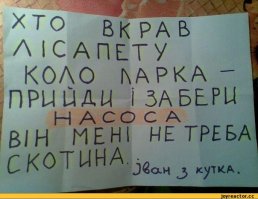 ХТО ВКРАВ
ЛІСАПЕТУ
КОЛО ПАРКА –
ПРИЙДИ І ЗАБЕРИ
НАСОСА
ВІН МЕНІ НЕ ТРЕБА
СКОТИНА. Іван з кутка.
joyreactor.cc